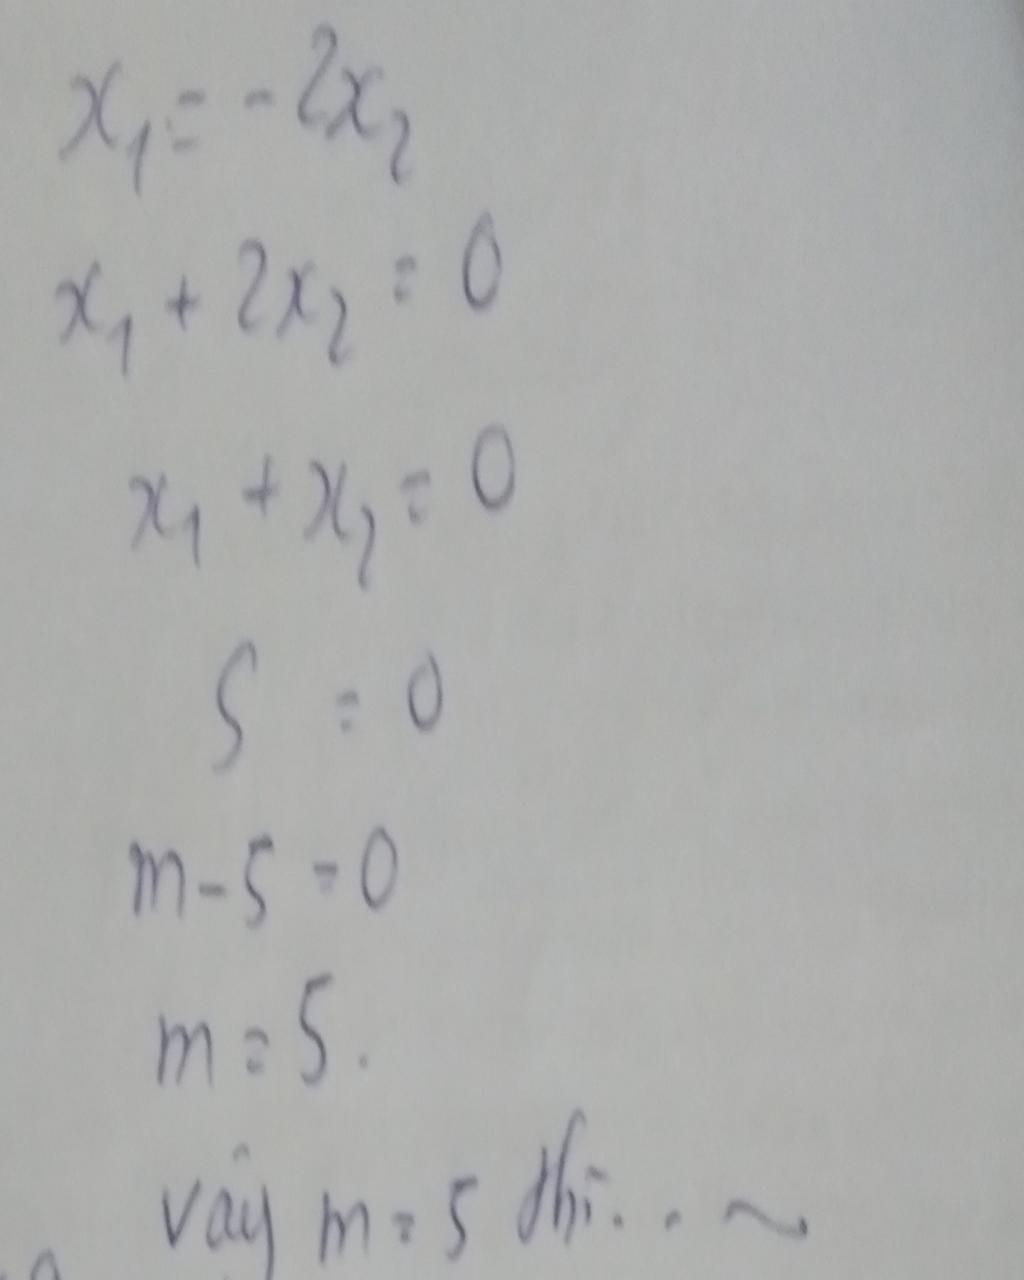 x₁ = -2x₂
x₁ + 2x₂ = 0
x₁ + x₂ = 0
S = 0
m - 5 = 0
m = 5.
vây m = 5 thì... ~